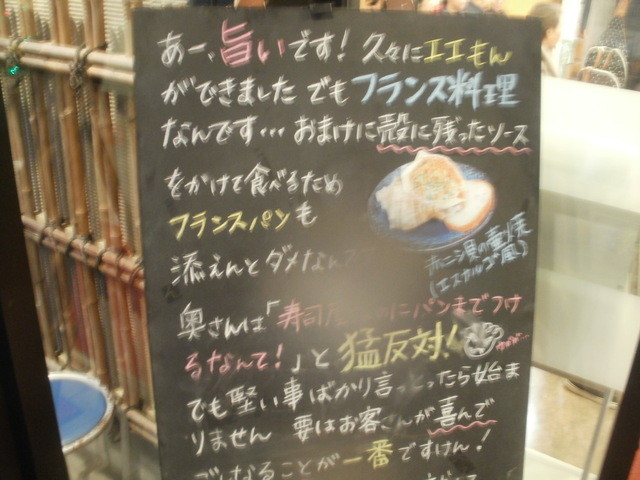 あー、旨いです! 久々にエエもん
ができました でも フランス料理
なんです… おまけに殻に残ったソース
をかけて食べるため
フランスパンも
添えんとダメなんで
赤ニシ貝の壷焼
(エスカルゴ風)
奥さんは「寿司屋なのにパンまでつけ
るなんて!」と 猛反対!
でも堅い事ばかり言っとったら始ま
りません 要はお客さんが喜んで
なることが一番ですけん!